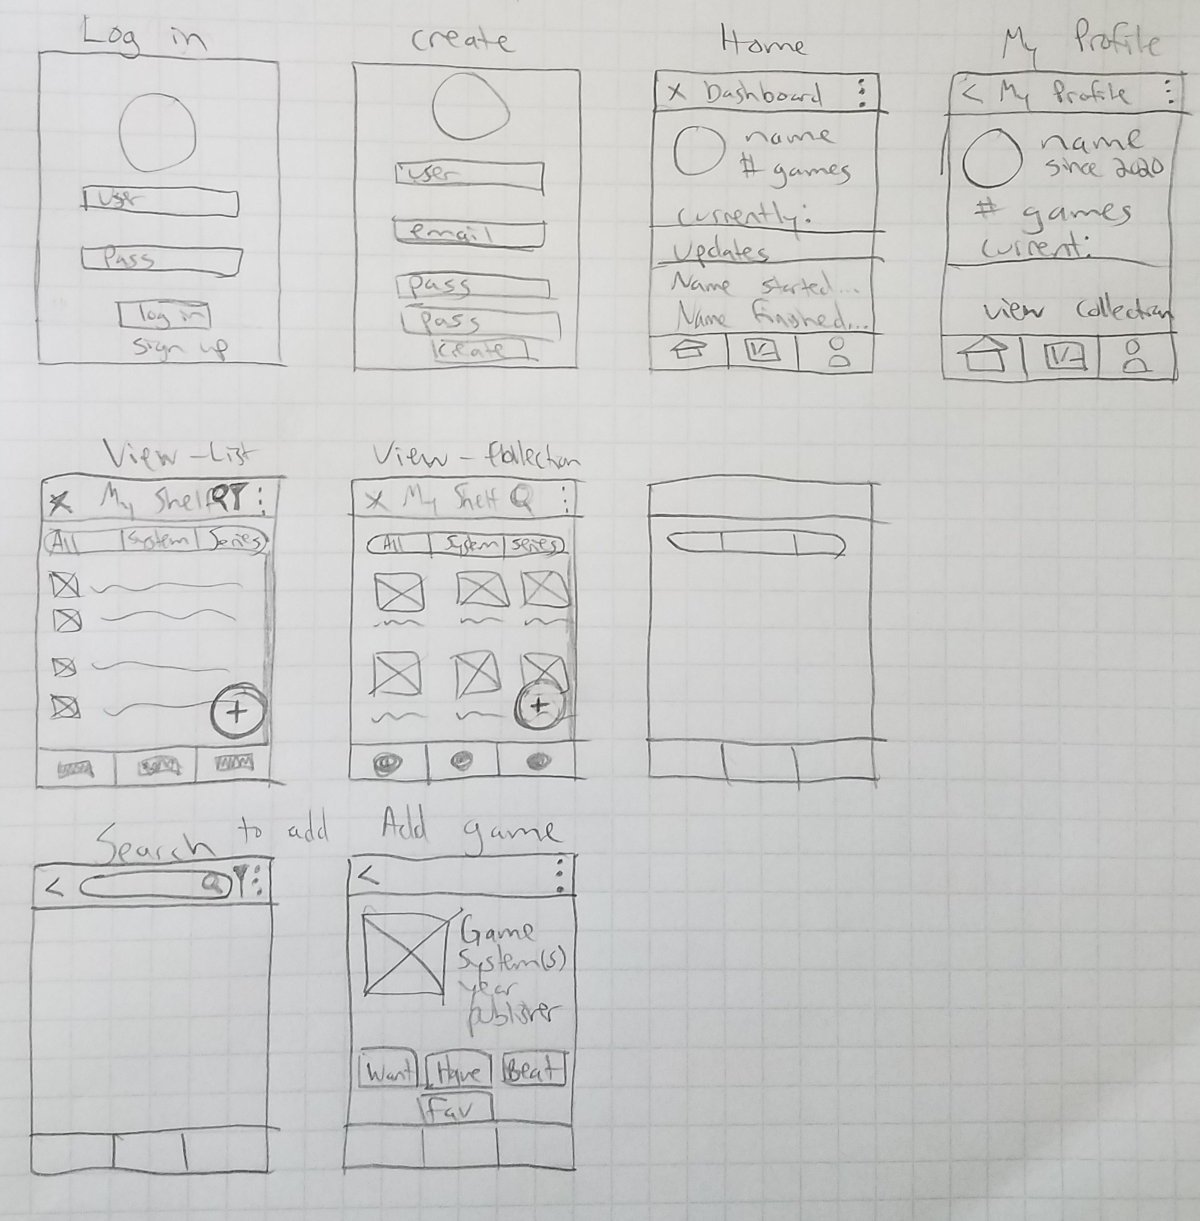 Log in
User
Pass
log in
Sign up
create
user
email
pass
pass
create
Home
X Dashboard
name
# games
Currently:
Updates
Name started...
Name finished...
My Profile
< My Profile
name
since 2020
# games
Current:
View Collection
View - List
X My Shelf
All System Series
+
View - Collection
X My Shelf
All System Series
+
Search to add
<
Add game
<
Game
System(s)
year
publisher
Want Have Beat
Fav